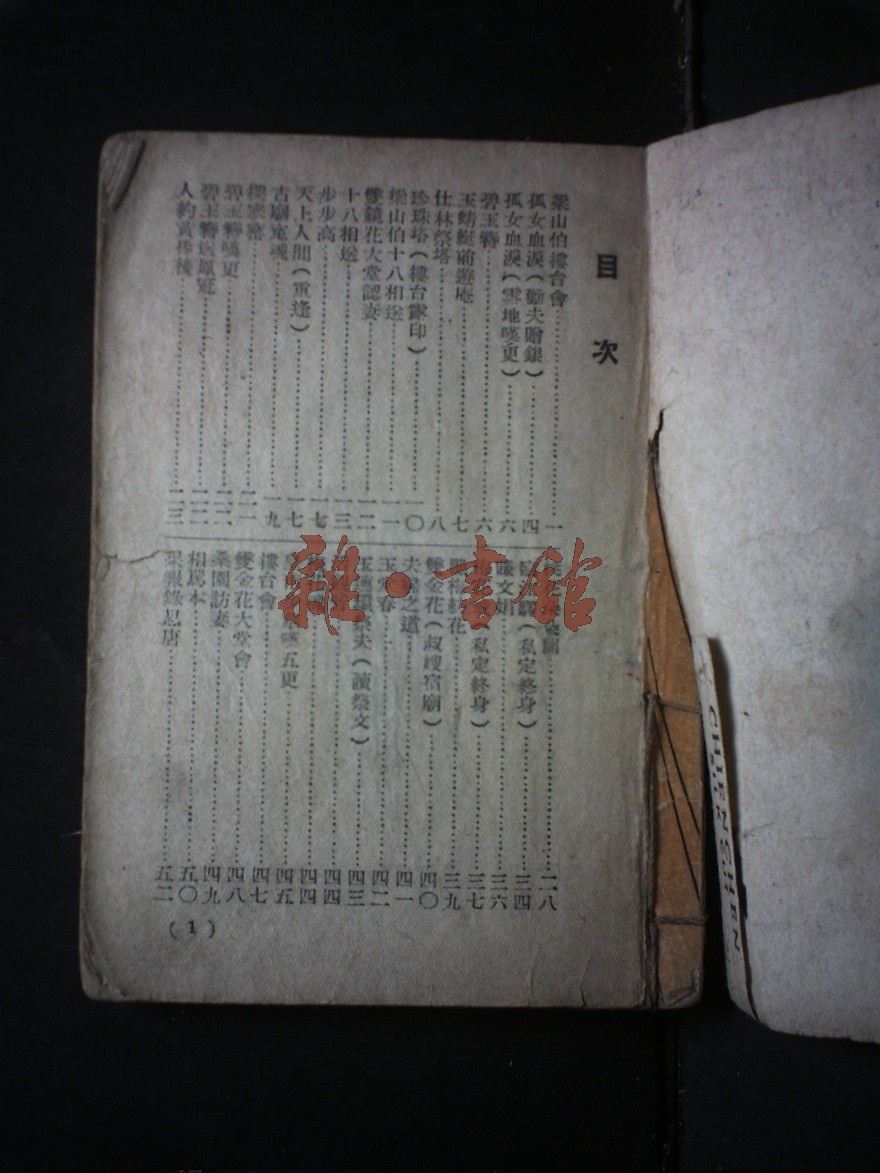 目次
梁山伯樓台會 一
孤女血淚(勸夫贈銀) 四
孤女血淚(雪地嘆更) 六
碧玉簪 六
玉蜻蜓前遊庵 七
仕林祭塔 八
珍珠塔(樓台露印) 一〇
梁山伯十八相送 一一
雙鏡花大堂認妻 一二
十八相送 一三
步步高 一七
天上人間(重逢) 一七
古廟冤魂 一九
探寒窰 二一
碧玉簪嘆更 二二
碧玉簪送鳳冠 二二
人約黃昏後 二三
二八
(私定終身) 三四
文娟 三六
(私定終身) 三七
花 三九
雙金花(叔嫂宿廟) 四〇
夫之道 四一
玉堂春 四二
祭夫(讀祭文) 四三
四四
四四
嘆五更 四五
樓台會 四七
雙金花大堂會 四八
桑園訪妻 四九
相罵本 五〇
果報錄思唐 五二
(1)
雜·書館